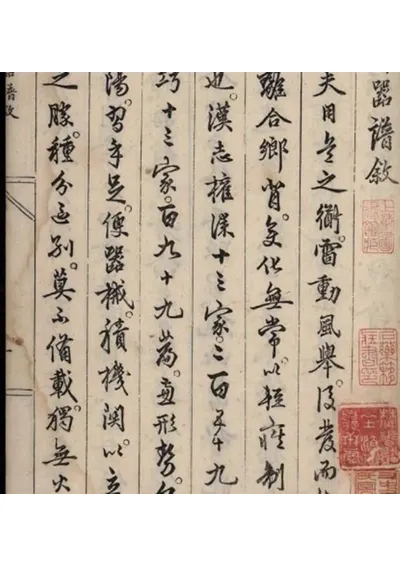 器譜敘
夫用兵之術雷動風舉後發而
離合鄉背變化無常以輕疾制
也漢志權謀十三家二百五十九
巧十三家百九十九篇形勢
陽習手足便器械積機關以立
之勝種分區別莫不備載獨無火
譜敘